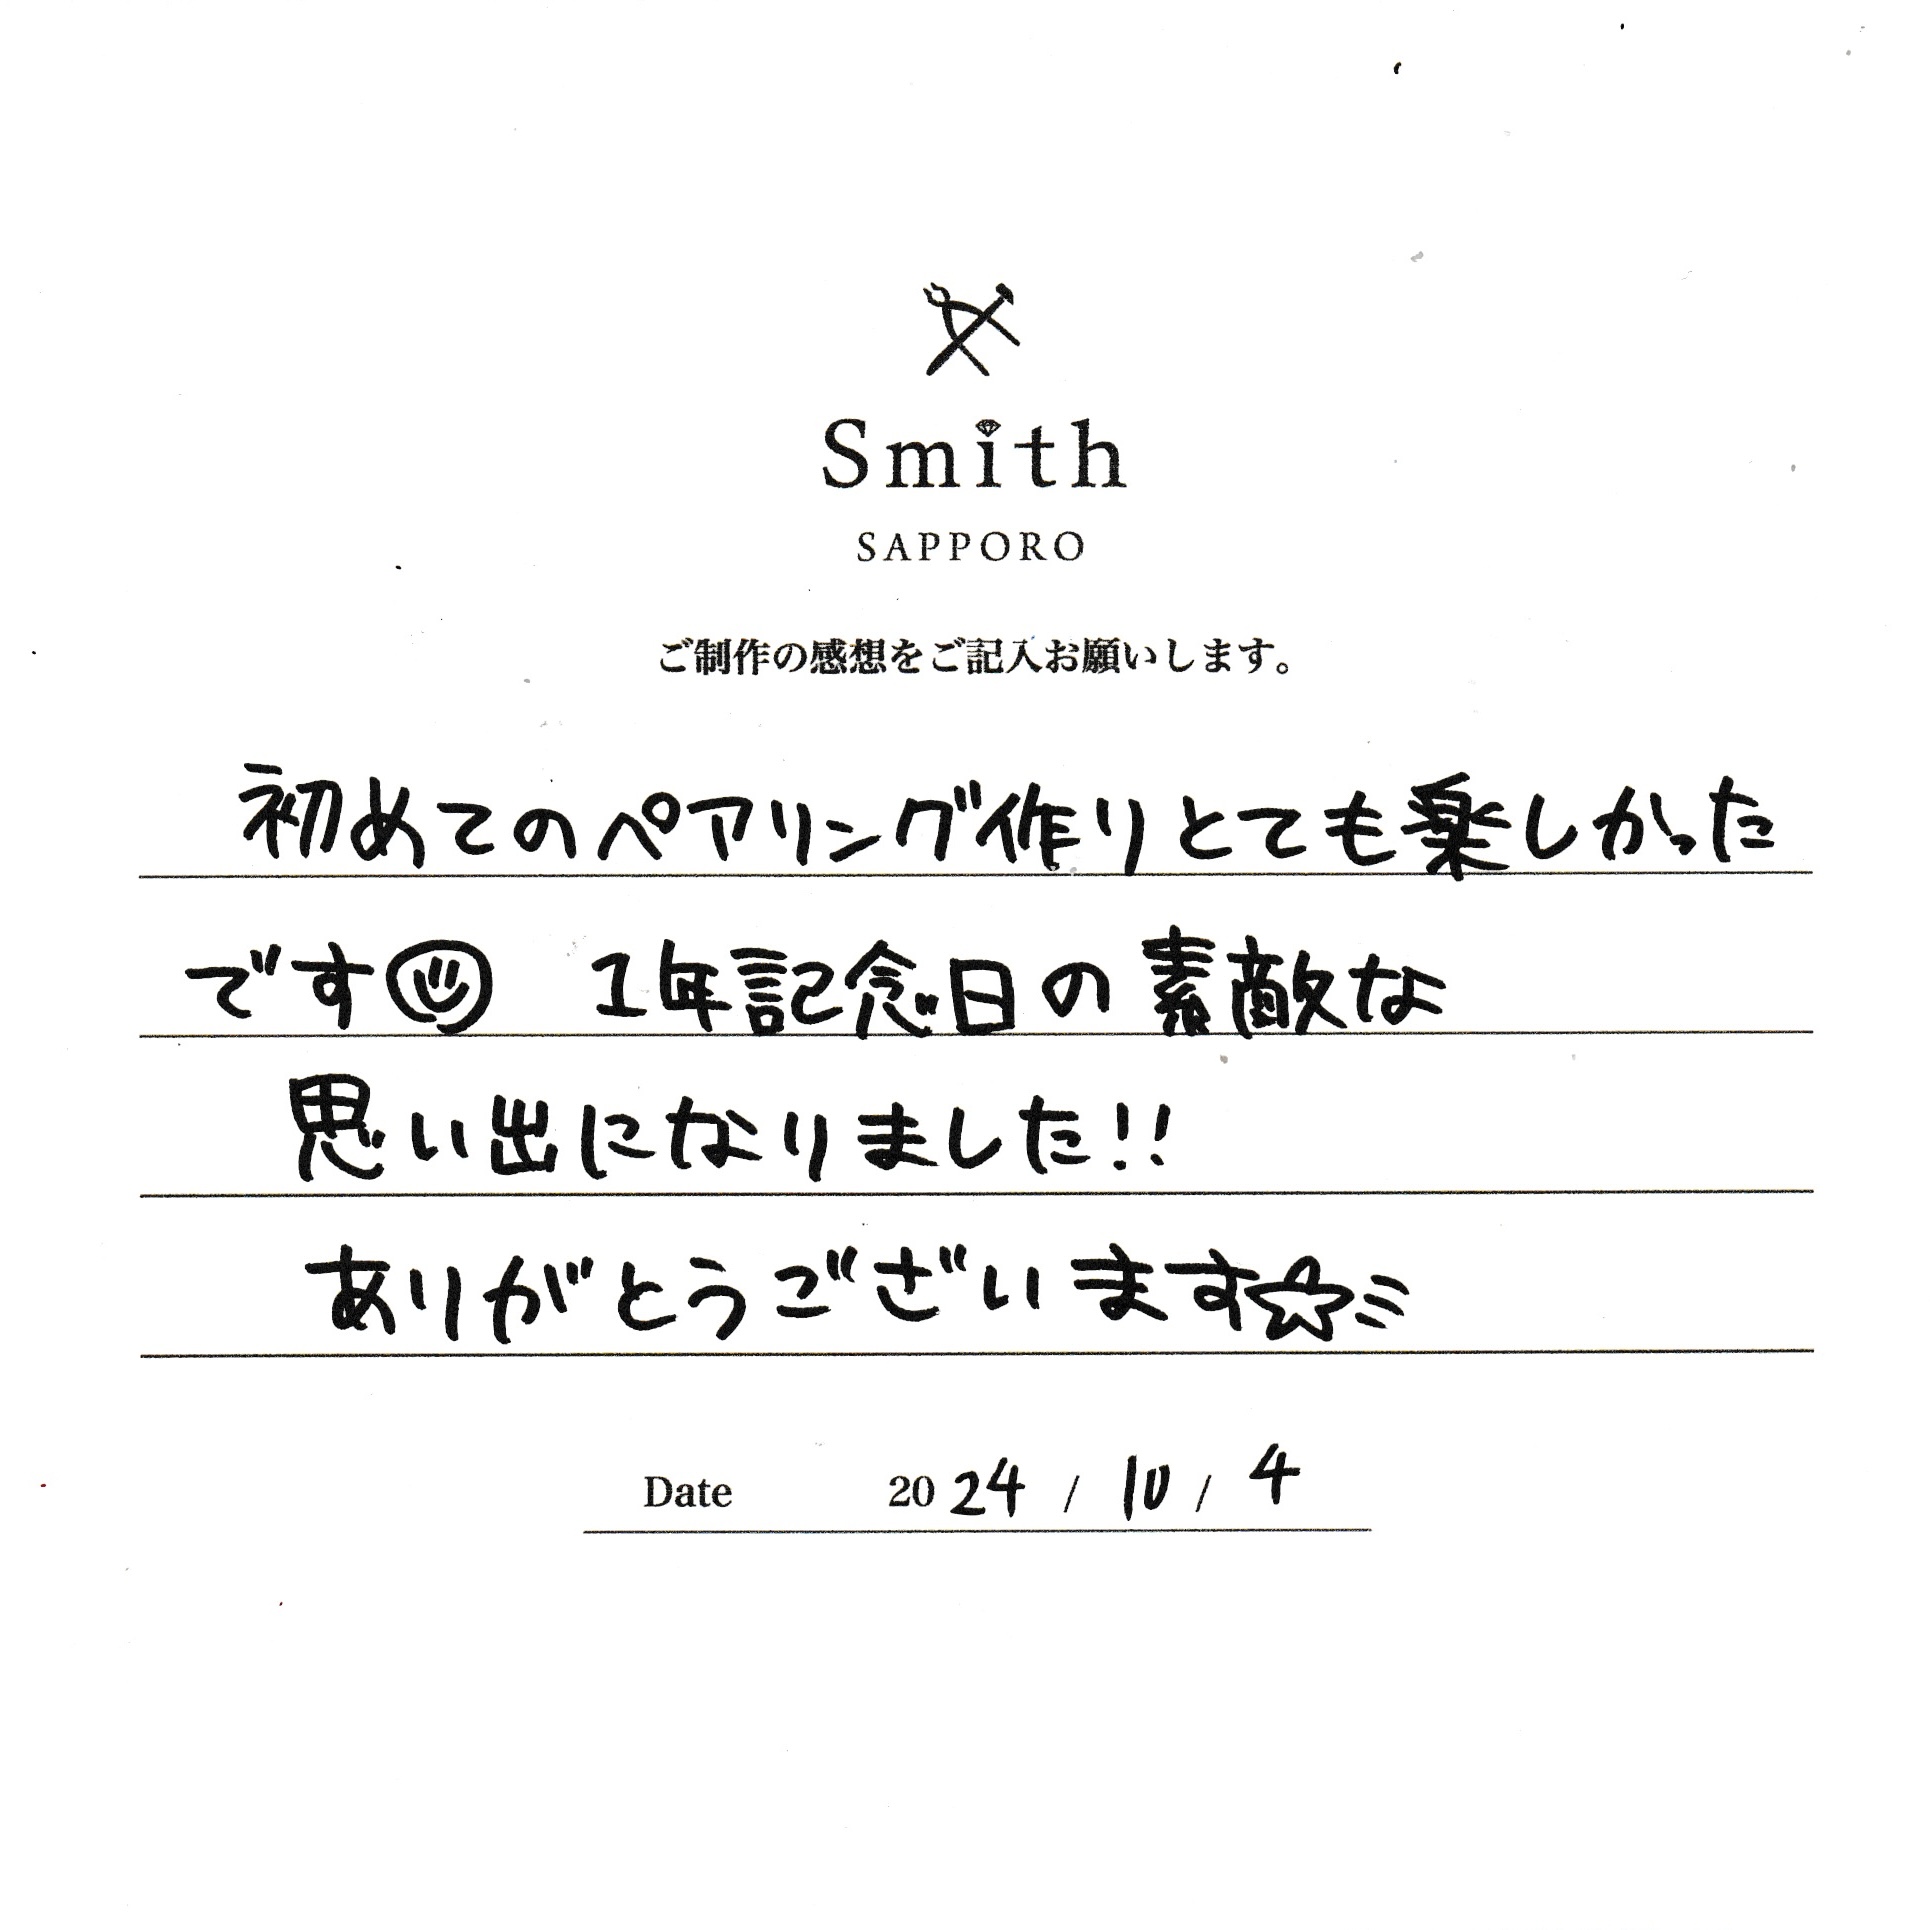 Smith
SAPPORO
ご制作の感想をご記入お願いします。
初めてのペアリング作りとても楽しかった
です 1年記念日の素敵な
思い出になりました!!
ありがとうございます☆ミ
Date 2024 / 10 / 4